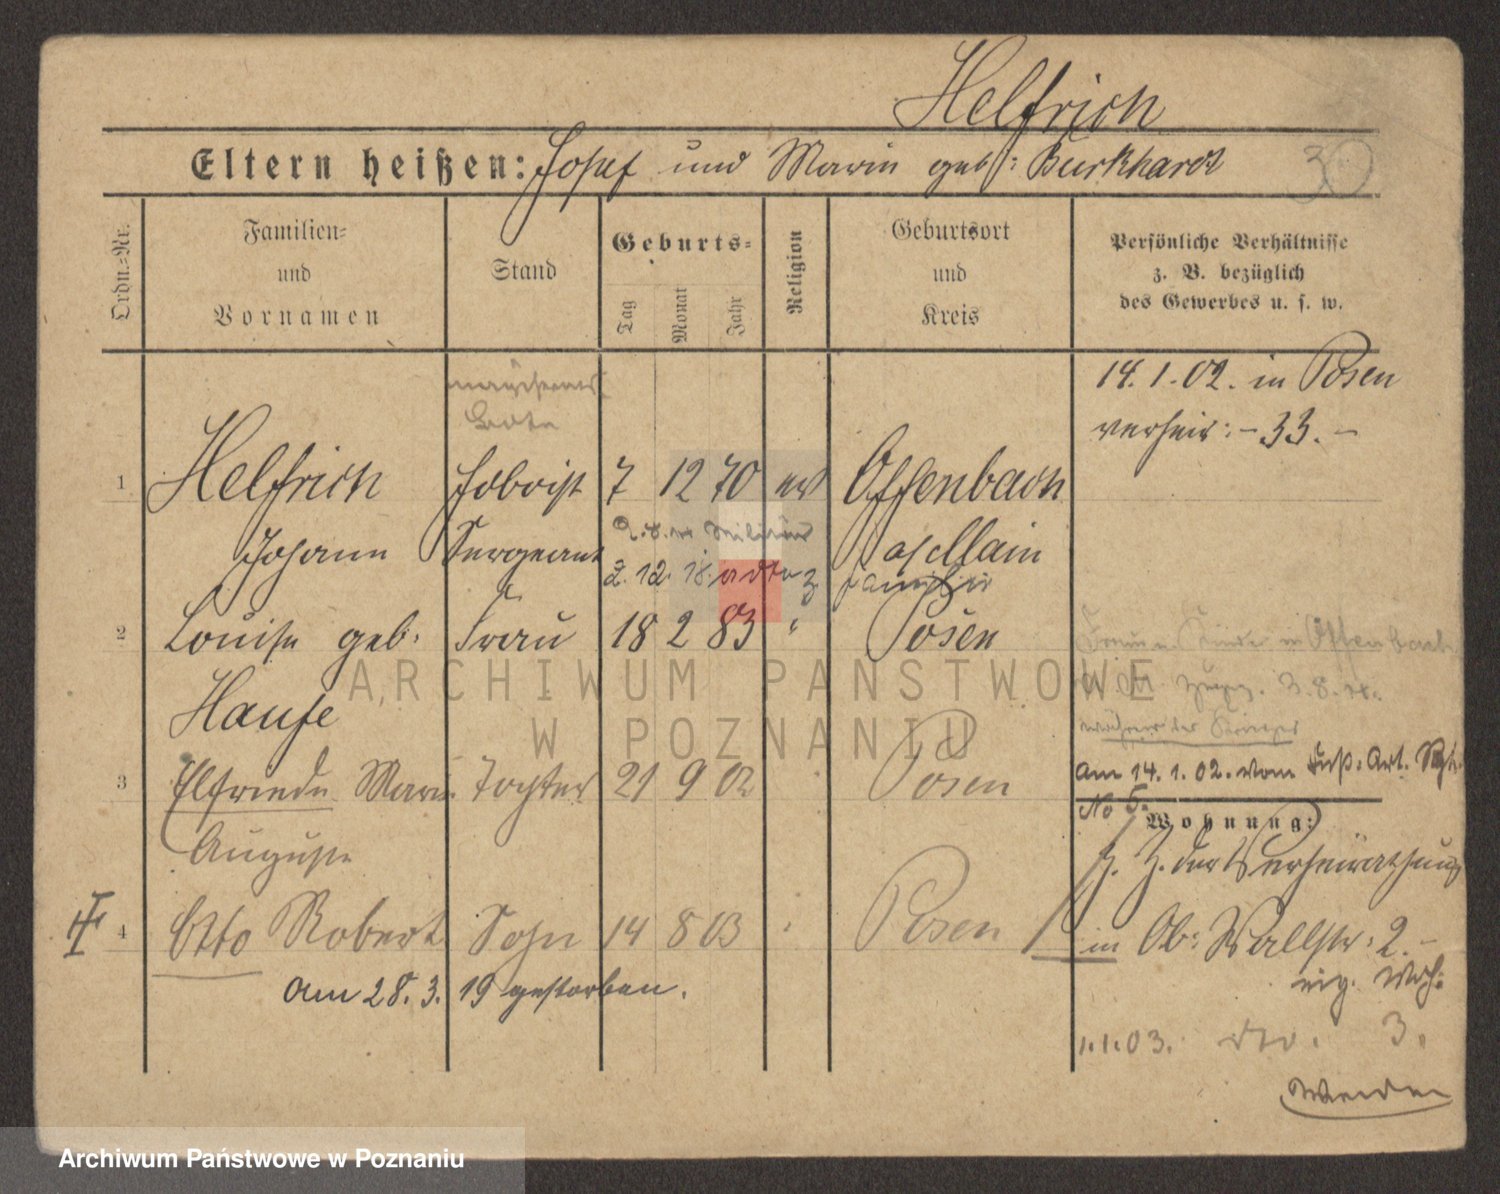 Helfrich
Eltern heißen: Josef und Maria geb: Burkhardt
30
Ordn.-Nr.
Familien- und Vornamen
Stand
Geburts-
Tag Monat Jahr
Religion
Geburtsort und Kreis
Persönliche Verhältnisse
z. B. bezüglich
des Gewerbes u. s. w.
14. 1. 02. in Posen
verheir: - 33. -
1 Helfrich 7 12 70 Offenbach
Johann Sergeant a/Main
2. 12. 18.
2 Louise geb. Frau 18 2 83 " Posen
Haufe
Frau u. Kinder in Offenbach
3. 8. 14.
während des Krieges
3 Elfriede Maria Tochter 21 9 02 Posen
am 14. 1. 02. vom Fuß. Art. Rgt.
No 5.
Auguste
Wohnung:
z. Z. der Verheirathung
4 Otto Robert Sohn 14 8 03 Posen
in Ob: Wallstr: 2. -
am 28. 3. 19 gestorben.
1.1.03. dto. 3.
ARCHIWUM PAŃSTWOWE
W POZNANIU
Archiwum Państwowe w Poznaniu